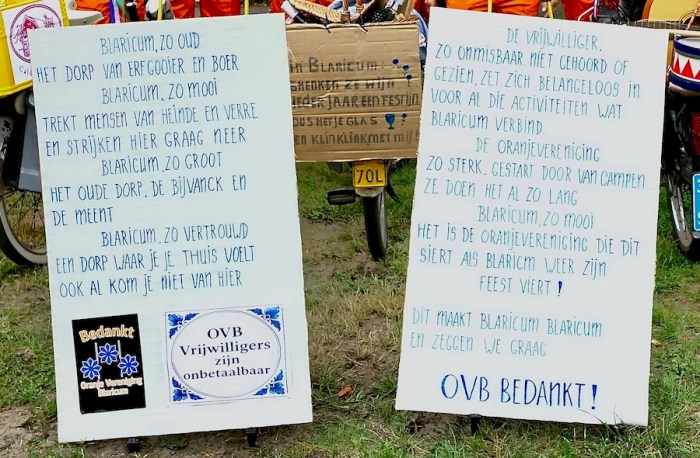 BLARICUM, ZO OUD
HET DORP VAN ERFGOOIER EN BOER
BLARICUM, ZO MOOI
TREKT MENSEN VAN HEINDE EN VERRE
EN STRIJKEN HIER GRAAG NEER
BLARICUM, ZO GROOT
HET OUDE DORP, DE BIJVANCK EN
DE MEENT
BLARICUM, ZO VERTROUWD
EEN DORP WAAR JE JE THUIS VOELT
OOK AL KOM JE NIET VAN HIER
Bedankt
Oranje Vereniging
Blaricum
OVB
Vrijwilligers
zijn
onbetaalbaar
in BLARICUM
SCHENKEN ZE WIJN
IEDER JAAR EEN FESTIJN
DUS HEF JE GLAS
EN KLINK KLINK MET MIJ
70L
DE VRIJWILLIGER,
ZO ONMISBAAR NIET GEHOORD OF
GEZIEN, ZET ZICH BELANGELOOS IN
VOOR AL DIE ACTIVITEITEN WAT
BLARICUM VERBIND
DE ORANJEVERENIGING
ZO STERK, GESTART DOOR VAN CAMPEN
ZE DOEN HET AL ZO LANG
BLARICUM, ZO MOOI
HET IS DE ORANJEVERENIGING DIE DIT
SIERT ALS BLARICUM WEER ZIJN
FEEST VIERT!
DIT MAAKT BLARICUM BLARICUM
EN ZEGGEN WE GRAAG
OVB BEDANKT!